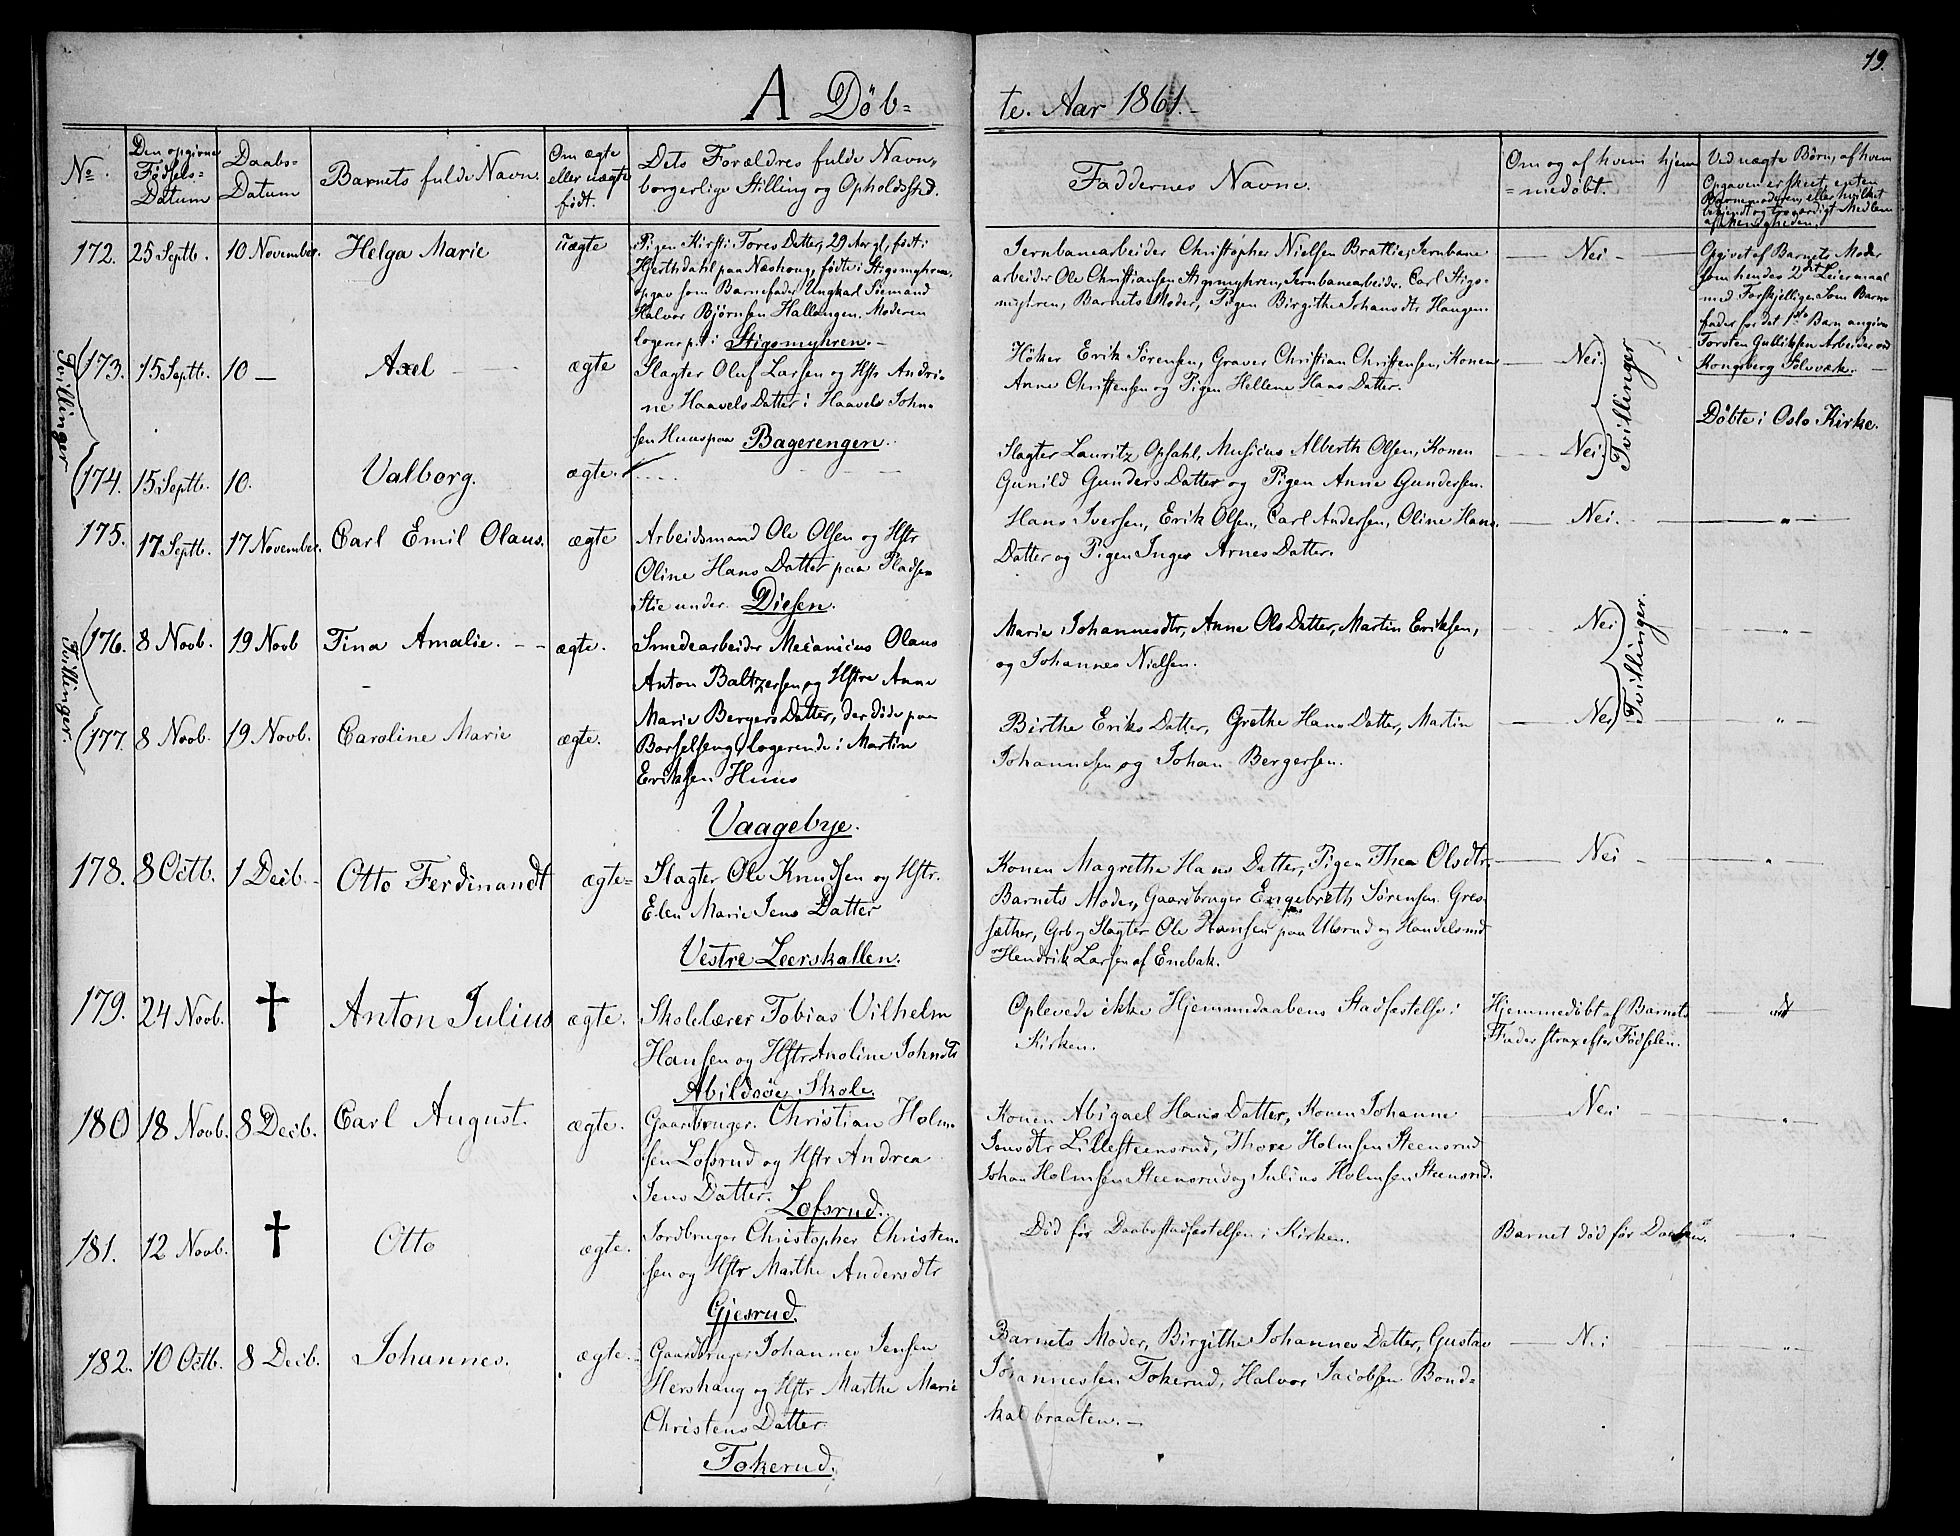 19.
A Døb-
te. Aar 1861.
No.
Den opgivne Fødsels-Datum
Daabs-Datum
Barnets fulde Navn.
Om ægte eller uægte født.
Dets Forældres fulde Navn, borgerlige Stilling og Opholdssted.
Faddernes Navne.
Om og af hvem hjem=medøbt.
Ved uægte Børn, af hvem Opgaven er skeet, enten Barnemoderen, eller hvilket bekjendt og troværdigt Medlem af Menigheden.
172. 25 Septb. 10 November. Helga Marie uægte
Pigen Kirsti Tores Datter, 29 Aar gl, født i
Hjerthdahl paa Næshoug, fødte i Stigsmyhren,
opgav som Barnefader Ungkarl Søemand
Halvor Bjørnsen Hallangen. Moderen
logerer p.t. i Stigsmyhren.
Jernbanearbeider Christopher Nielsen Bratlie, Jernbane
arbeider Ole Christiansen Stigsmyhren, Jernbanearbeider Carl Stigs-
myhren, Barnets Moder, Pigen Birgithe Johansdt Haugen.
Nei
Opgivet af Barnets Moder
som hendes 2det Leiermaal
med Forskjellige. Som Barne
fader for det 1ste Barn angives
Torsten Gulliksen Arbeider ved
Kongsberg Sølvværk.
Tvillinger
173. 15 Septb. 10 — Axel ægte
Slagter Oluf Larsen og Hstr Andri-
ne Haavels Datter i Haavels John-
sen Huus paa Bagerengen.
Høker Erik Sørensen, Graver Christian Christensen, Konen
Anne Christensen og Pigen Hellene Hans Datter.
Nei.
Tvillinger
Døbte i Oslo Kirke.
174. 15 Septb. 10. Valborg. ægte.
Slagter Lauritz Opsahl, Musicus Alberth Olsen, Konen
Gunild Gunders Datter og Pigen Anne Gundersen.
Nei.
175. 17 Septb. 17 November. Carl Emil Olaus. ægte
Arbeidsmand Ole Olsen og Hstr
Oline Hans Datter paa Pladsen
Stie under Disen.
Hans Iversen, Erik Olsen, Carl Andersen, Oline Hans
Datter og Pigen Inger Arnes Datter.
Nei.
Tvillinger.
176. 8 Novb. 19 Novb Tina Amalie. ægte.
Smedearbeider Mecanicus Olaus
Anton Baltzersen og Hstre Anne
Marie Bergers Datter, der døde paa
logerende i Martin
Eriksen Huus
Vaagebye.
Marie Johannesdtr, Anne Ols Datter, Martin Eriksen,
og Johannes Nielsen.
Nei
Tvillinger.
177. 8 Novb. 19 Novb. Caroline Marie ægte.
Birthe Eriks Datter, Grethe Hans Datter, Martin
Johannesen og Johan Bergersen.
Nei
178. 8 Octb. 1 Decb. Otto Ferdinandt ægte
Slagter Ole Knudsen og Hstr.
Elen Marie Jens Datter
Vestre Leerskallen.
Konen Magrethe Hans Datter, Pigen Thea Olsdtr,
Barnets Moder, Gaardbruger Engebreth Sørensen Gres-
sæther, Grb og Slagter Ole Hansen paa Ulsrud og Handelsmd
Hendrik Larsen af Enebak.
Nei
179. 24 Novb. † Anton Julius ægte.
Skolelærer Tobias Vilhelm
Hansen og Hstr Anoline Johnsdtr
Abildsøe Skole.
Oplevede ikke Hjemmedaabens Stadfæstelse i
Kirken.
Hjemmedøbt af Barnets
Fader strax efter Fødselen.
180 18 Novb. 8 Decb. Carl August. ægte.
Gaardbruger. Christian Holm-
sen Lofsrud og Hstr Andrea
Jens Datter. Lofsrud.
Konen Abigael Hans Datter, Konen Johanne
Jensdtr Lillesteensrud, Thore Holmsen Steensrud
Johan Holmsen Steensrud og Julius Holmsen Steensrud.
Nei
181. 12 Novb. † Otto ægte.
Jordbruger Christopher Christen-
sen og Hstr Marthe Andersdtr
Gjesrud.
Død før Daabsstadfæstelsen i Kirken.
Barnet død før Daaben.
182. 10 Octb. 8 Decb. Johannes. ægte.
Gaardbruger Johannes Jensen
Hershaug og Hstr Marthe Marie
Christens Datter
Tokerud.
Barnets Moder, Birgithe Johannes Datter, Gustav
Johannessen Tokerud, Halvor Jacobsen Bond-
kal braaten.
Nei